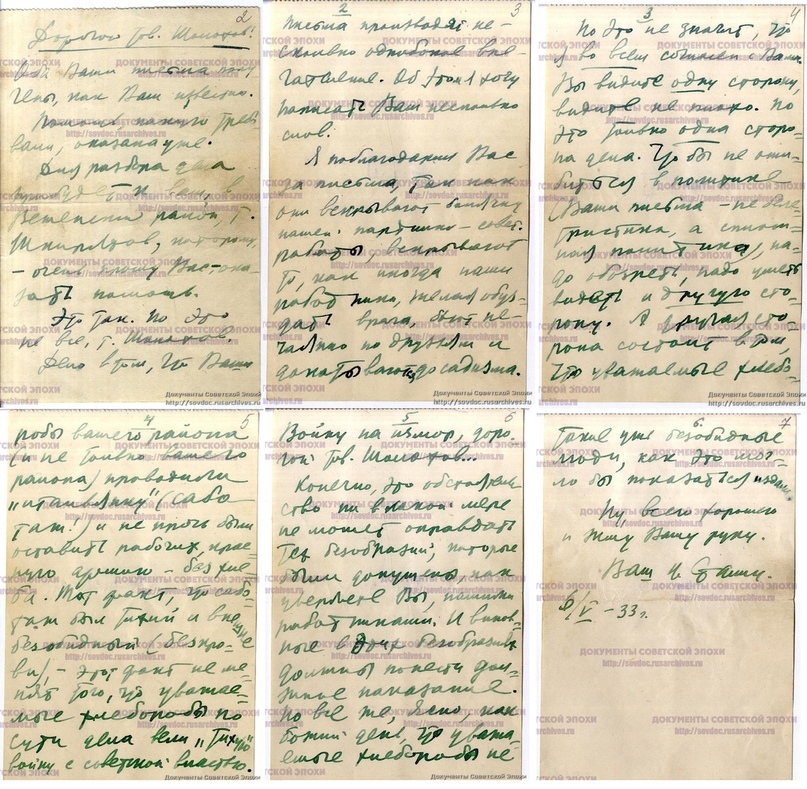 2
Дорогой тов. Шолохов!
Оба Ваши письма полу-
чены, как Вам известно.
Помощь, какую требо-
вали, оказана уже.
Для разбора дела
прибудет к вам, в
Вешенский район, т.
Шкирятов, которому
– очень прошу Вас – ока-
зать помощь.
Это так. Но это
не все, т. Шолохов.
Дело в том, что Ваши
2
3
письма производят не-
сколько однобокое впе-
чатление. Об этом я хочу
написать Вам несколько
слов.
Я поблагодарил Вас
за письма, так как
они вскрывают болячку
нашей партийно-совет.
работы, вскрывают
то, как иногда наши
работники, желая обуз-
дать врага, бьют не-
чаянно по друзьям и
докатываются до садизма.
3
4
Но это не значит, что
я во всем согласен с Вами.
Вы видите одну сторону,
видите не плохо. Но
это только одна сторо-
на дела. Чтобы не оши-
биться в политике
(Ваши письма – не белле-
тристика, а сплош-
ная политика), на-
до обозреть, надо уметь
видеть и другую сто-
рону. А другая сто-
рона состоит в том,
что уважаемые хлебо-
4
5
робы вашего района
(и не только вашего
района) проводили
„итальянку" (сабо-
таж!) и не прочь были
оставить рабочих, крас-
ную армию – без хле-
ба. Тот факт, что сабо-
таж был тихий и внешне
безобидный (без кро-
ви), – этот факт не ме-
няет того, что уважае-
мые хлеборобы по
сути дела вели „тихую"
войну с советской властью.
5
6
Войну на измор, доро-
гой тов. Шолохов...
Конечно, это обстоятель-
ство ни в какой мере
не может оправдать
тех безобразий, которые
были допущены, как
уверяете Вы, нашими
работниками. И винов-
ные в этих безобразиях
должны понести долж-
ное наказание.
Но все же ясно, как
божий день, что уважа-
емые хлеборобы не
6
7
такие уж безобидные
люди, как это мог-
ло бы показаться издали.
Ну, всего хорошего
и жму Вашу руку.
Ваш И. Сталин.
6/V – 33 г.
ДОКУМЕНТЫ СОВЕТСКОЙ ЭПОХИ
http://sovdoc.rusarchives.ru